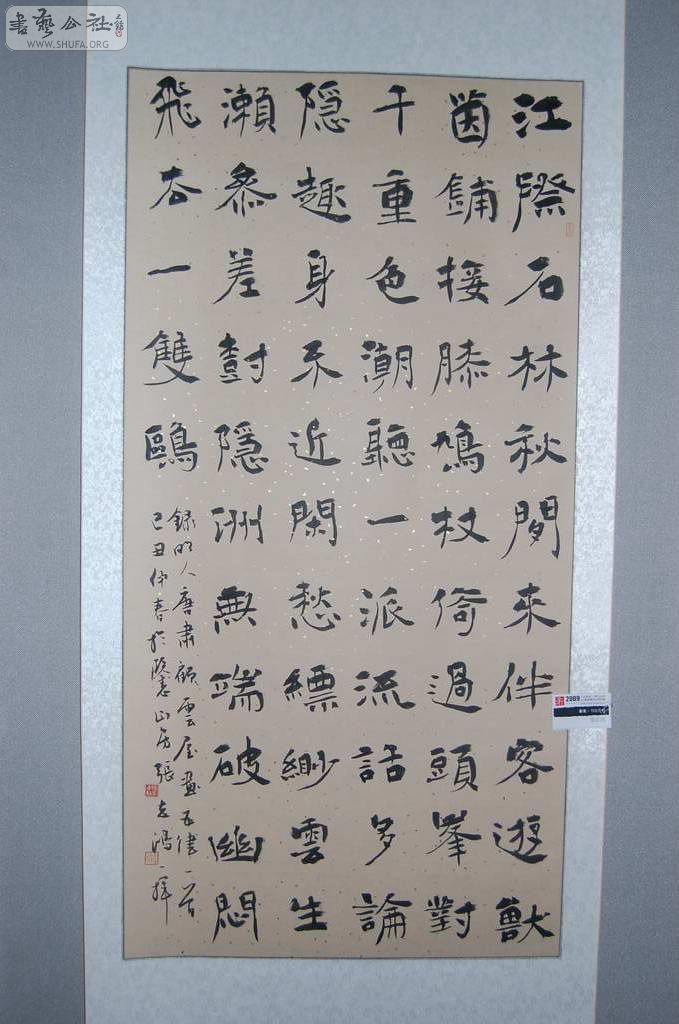 書藝公社
WWW.SHUFA.ORG
江際石林秋閒來伴客遊獸
茵鋪接膝鳩杖倚過頭峯對
千重色潮聽一派流話多論
隐趣身不近閑愁縹緲雲生
瀨參差樹隱洲無端破幽悶
飛去一雙鷗
録明人唐肅顧雲屋畫五律一首
己丑仲春於山房張志鴻一揮
2009